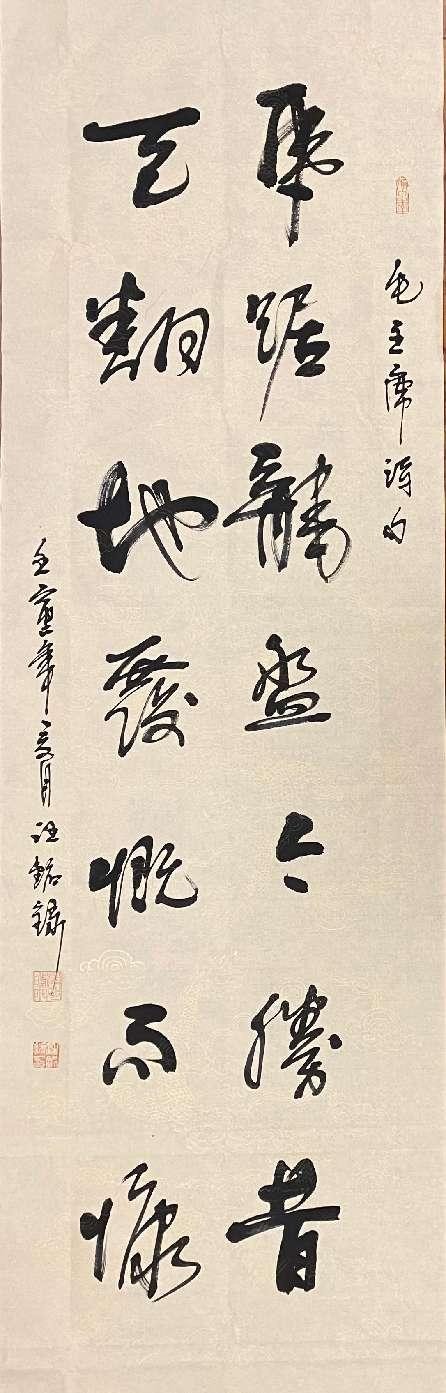 毛主席詩句
虎踞龍盘今勝昔
天翻地覆慨而慷
壬寅年夏月汪銘